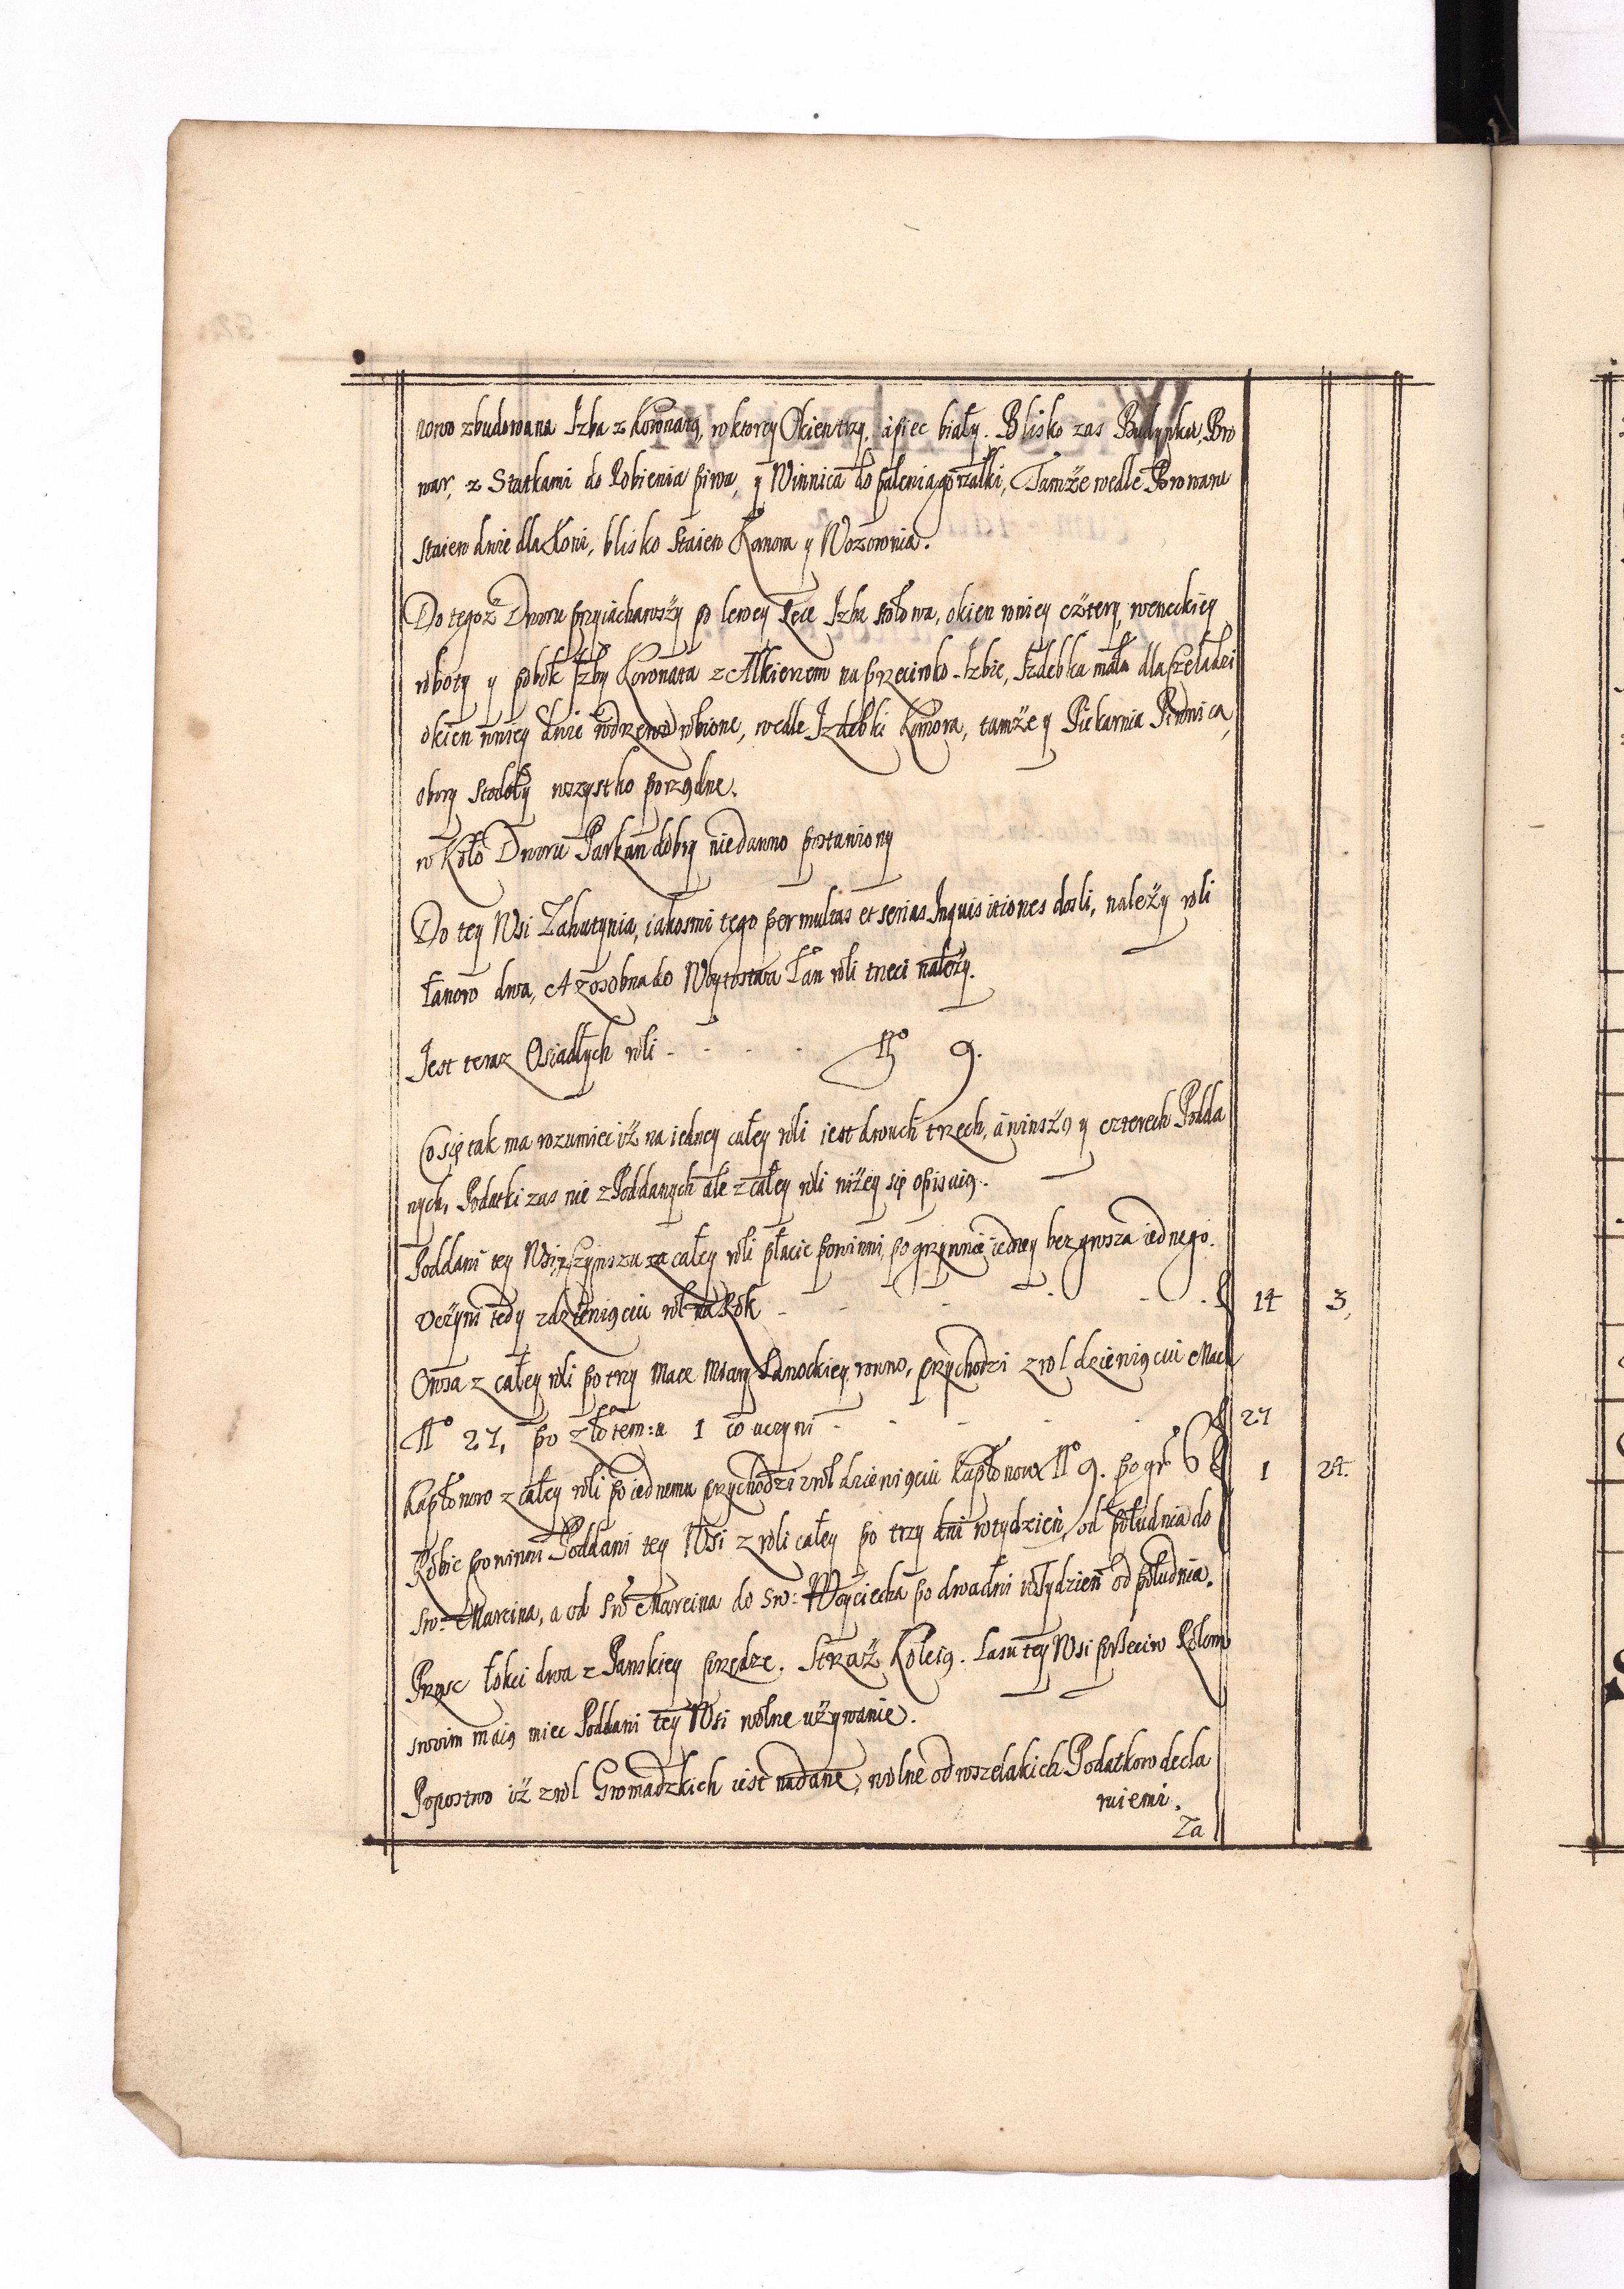 nowo zbudowana Izba z Komnatą, w ktorey Okien trzy, i piec biały. Blisko zas Budynku, Bro
war, z Statkami do Robienia piwa, y Winnica do palenia gorzałki, Tamże wedle Browaru
staien dwie dla Koni, blisko staien Komora y Wozownia.
Do tegoż Dworu przyiachawszy po lewey Ręce Izba stołowa, okien wniey cztery, weneckiey
roboty y pobok Izby Komnata z Alkierzem naprzeciwko Izbie, Izdebka mała dla czeladzi
okien wniey dwie wdrzewo robione, wedle Izdebki Komora, tamże y Piekarnia Piwnica,
obory stodoły wszystko porządne.
w Koło Dworu Parkan dobry niedawno postawiony
Do tey Wsi Zahutynia, iakosmi tego per multas et serias Inquisitiones dosli, należy roli
Łanow dwa, A zosobna do Woytostwa Łan roli trzeci należy.
Jest teraz Osiadłych roli - - - - Nº 9.
Co się tak ma rozumiec iż na iedney całey roli iest dwuch trzech, a ninszą y czterech Podda
nych, Podatki zas nie z Poddanych ale z całey roli niżey się opisuią.
Poddani tey Wsi, czynszu za całey roli płacic powinni, po grzywnie iedney bez grosza iednego.
Uczyni tedy z dziewiąciu rol na Rok - - - - - - f 14 3,
Owsa z całey roli po trzy Mace Miary Sanockiey rowno, przychodzi z rol dziewiąciu Mac
Nº 27, po złotem:u 1 co uczyni - - - - f 27
Kapłonow z całey roli po iednemu przychodzi z rol dziewiąciu Kapłonow Nº 9. po gr 6 f 1 24.
Robic powinni Poddani tey Wsi z roli całey po trzy dni w tydzień, od południa do
Sw: Marcina, a od Sw Marcina do Sw: Woyciecha po dwa dni w Tydzien od południa.
Prząsc łokci dwa z Panskiey przędze. Straż Koleią. Lasu tey Wsi przeciw Rolom
swoim maią miec Poddani tey Wsi wolne używanie.
Popostwo iż z rol Gromadzkich iest nadane, wolne od wszelakich Podatkow decla
ruiemi.
Za